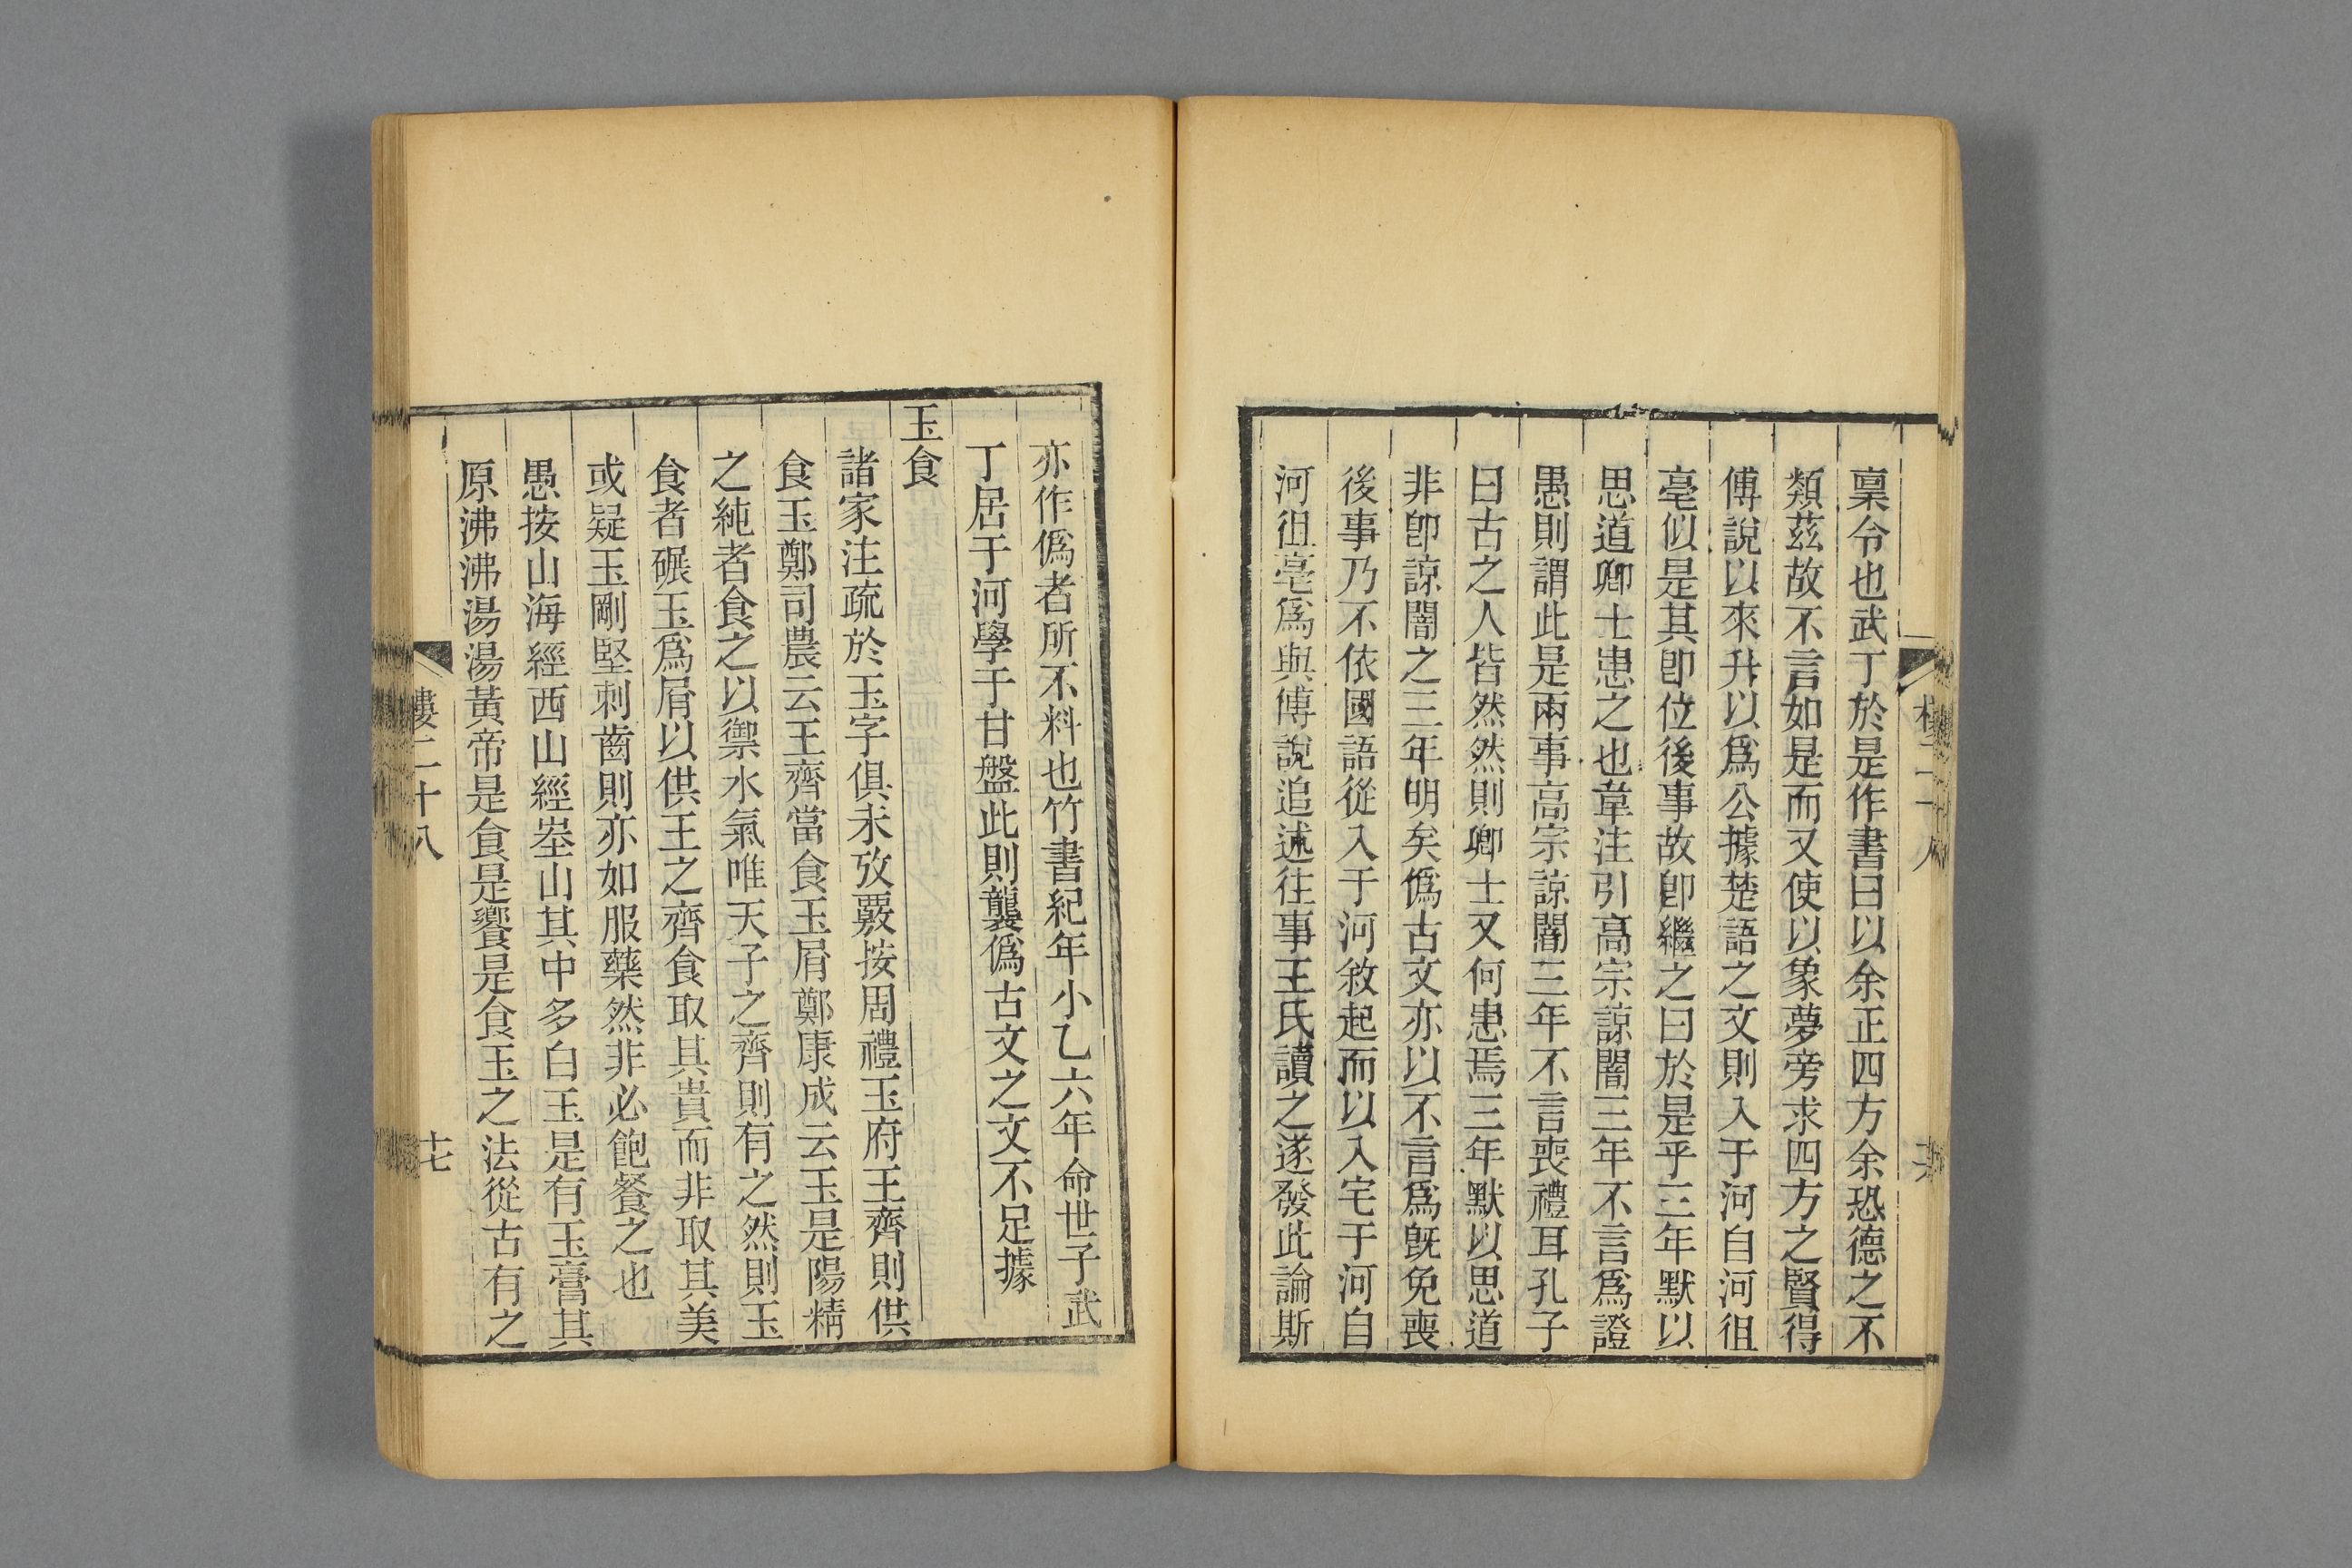 稟令也武丁於是作書曰以余正四方余恐德之不
類茲故不言如是而又使以象夢旁求四方之賢得
傅說以來升以爲公據楚語之文則入于河自河徂
亳似是其卽位後事故卽繼之曰於是乎三年默以
思道卿士患之也韋注引高宗諒闇三年不言爲證
愚則謂此是兩事高宗諒闇三年不言喪禮耳孔子
曰古之人皆然然則卿士又何患焉三年默以思道
非卽諒闇之三年明矣僞古文亦以不言爲旣免喪
後事乃不依國語從入于河敘起而以入宅于河自
河徂亳爲與傅說追述往事王氏讀之遂發此論斯
亦作僞者所不料也竹書紀年小乙六年命世子武
丁居于河學于甘盤此則襲僞古文之文不足據
玉食
諸家注疏於玉字俱未攷覈按周禮玉府王齊則供
食玉鄭司農云王齊當食玉屑鄭康成云玉是陽精
之純者食之以禦水氣唯天子之齊則有之然則玉
食者碾玉爲屑以供王之齊食取其貴而非取其美
或疑玉剛堅刺齒則亦如服藥然非必飽餐之也
愚按山海經西山經峚山其中多白玉是有玉膏其
原沸沸湯湯黃帝是食是饗是食玉之法從古有之
樓二十八
十七